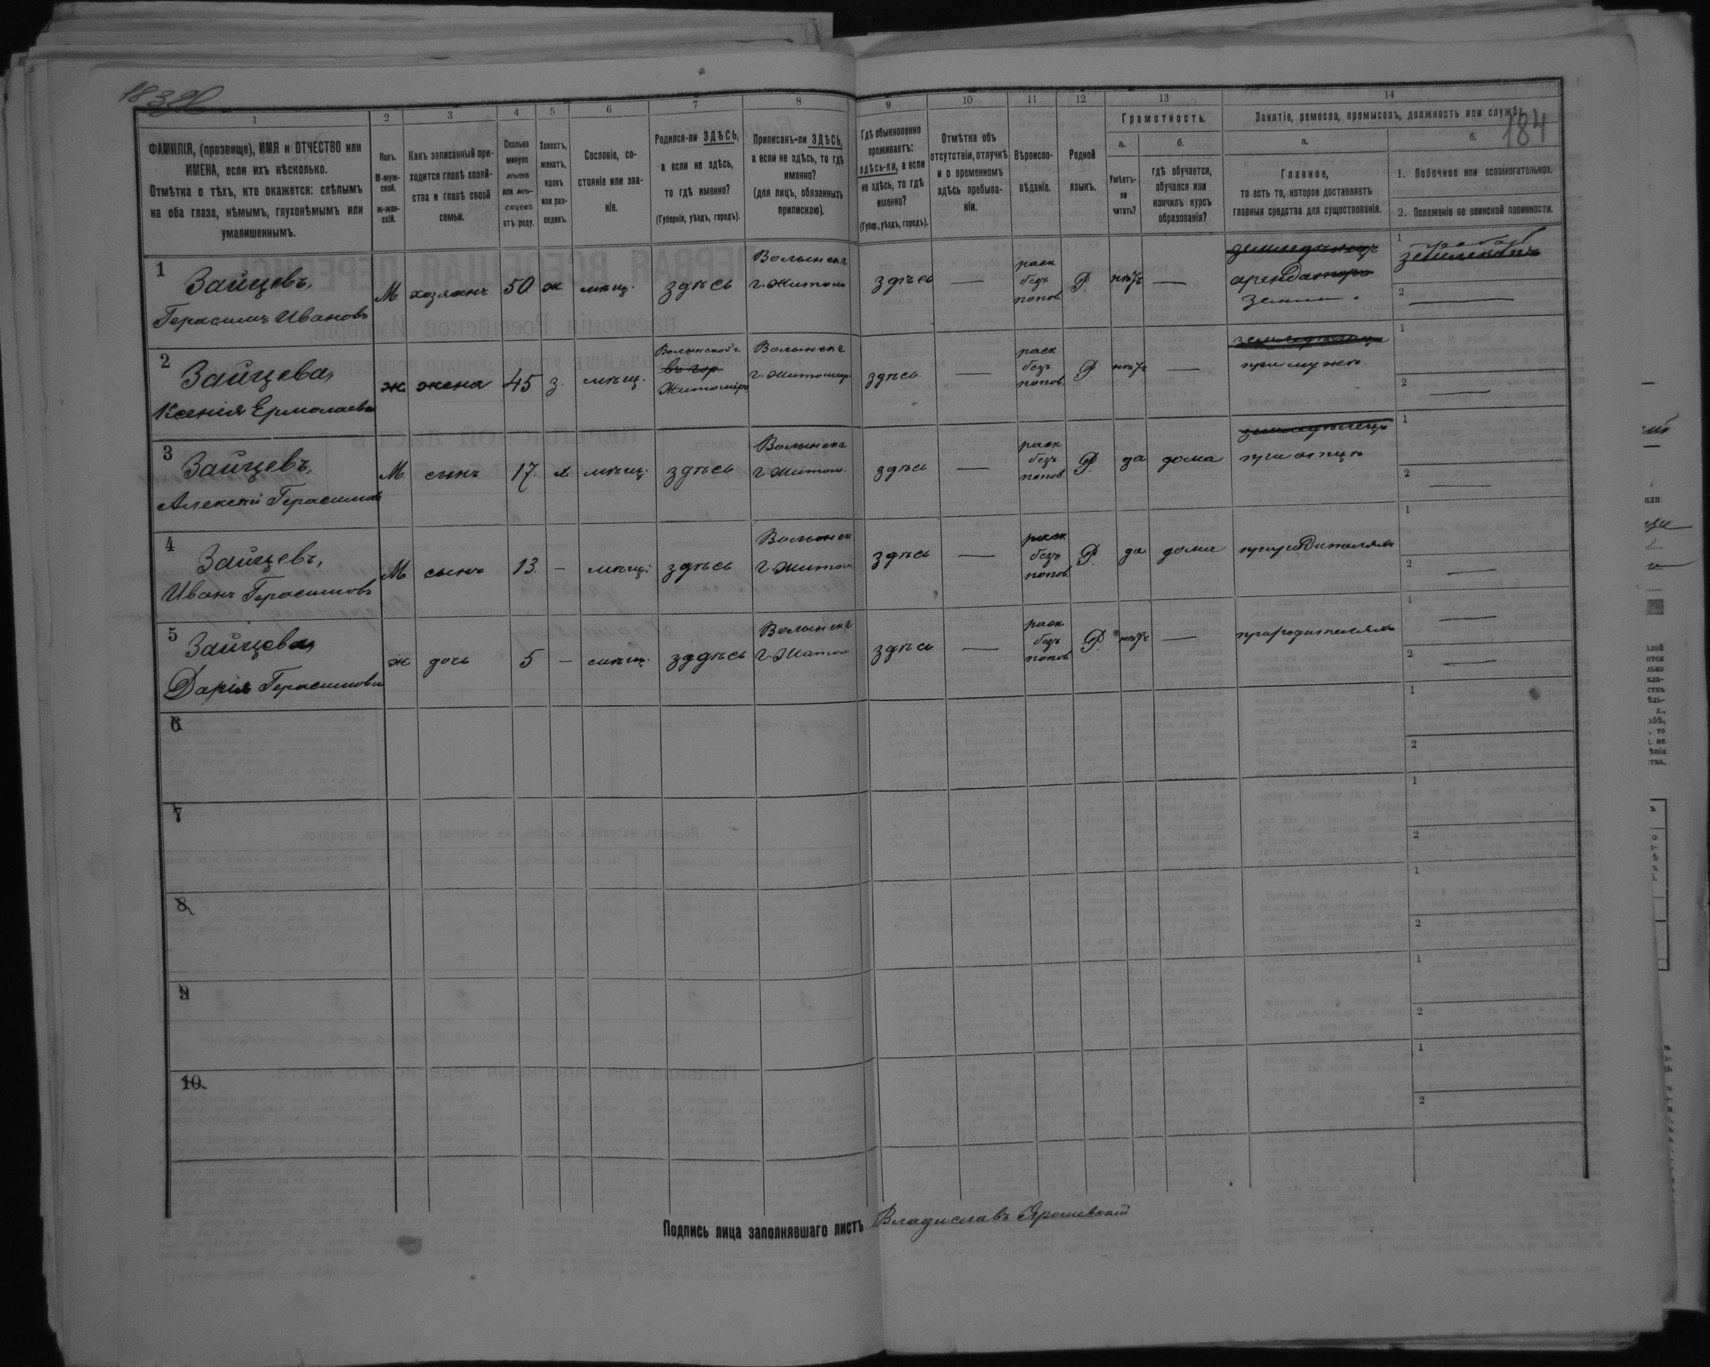 18320
184
1
2
3
4
5
6
7
8
9
10
11
12
13
14
ФАМИЛІЯ, (прозвище), ИМЯ и ОТЧЕСТВО или
ИМЕНА, если ихъ нѣсколько.
Отмѣтка о тѣхъ, кто окажется: слѣпымъ
на оба глаза, нѣмымъ, глухонѣмымъ или
умалишеннымъ.
Полъ.
М-муж-
ской.
Ж-жен-
скій.
Какъ записанный при-
ходится главѣ хозяй-
ства и главѣ своей
семьи.
Сколько
минуло
лѣтъ
или мѣ-
сяцевъ
отъ роду.
Холостъ,
женатъ,
вдовъ
или раз-
веденъ.
Сословіе, со-
стояніе или зва-
ніе.
Родился-ли ЗДѢСЬ,
а если не здѣсь,
то гдѣ именно?
(Губернія, уѣздъ, городъ).
Приписанъ-ли ЗДѢСЬ,
а если не здѣсь, то гдѣ
именно?
(для лицъ, обязанныхъ
припискою).
Гдѣ обыкновенно
проживаетъ:
здѣсь-ли, а если
не здѣсь, то гдѣ
именно?
(Губер., уѣздъ, городъ).
Отмѣтка объ
отсутствіи, отлучкѣ
и о временномъ
здѣсь пребыва-
ніи.
Вѣроиспо-
вѣданіе.
Родной
языкъ.
Грамотность.
а.
Умѣетъ-
ли
читать?
б.
гдѣ обучается,
обучался или
кончилъ курсъ
образованія?
Занятіе, ремесло, промыселъ, должность или служба.
а.
Главное,
то есть то, которое доставляетъ
главныя средства для существованія.
б.
1. Побочное или вспомогательное.
2. Положеніе по воинской повинности.
1
Зайцевъ,
Герасимъ Ивановъ
М
хозяинъ
50
ж
мѣщ.
здѣсь
Волынск г
г. Житом
здѣсь
—
раск
безъ
попов
Р.
нѣтъ
—
земледѣлецъ
арендаторъ
земли
1
2
—
2
Зайцева,
Ксенія Ермолаева
ж
жена
45
з.
мѣщ.
Волынской г
въ гор
Житомірѣ
Волынск г
г. Житомир
здѣсь
—
раск
безъ
попов
Р
нѣтъ
—
земледѣлецъ
при мужѣ.
1
2
—
3
Зайцевъ,
Алексѣй Герасимов
М
сынъ
17
х
мѣщ.
здѣсь
Волынск г
г. Житом.
здѣсь
—
раск
безъ
попов
Р.
да
дома
земледѣлецъ
при отцѣ
1
2
—
4
Зайцевъ,
Иванъ Герасимовъ
М
сынъ
13
—
мѣщ.
здѣсь
Волынск
г Житом
здѣсь
—
раск
безъ
попов
Р.
да
дома
при родителяхъ
1
2
—
5
Зайцева,
Дарія Герасимова
ж
дочь
5
—
мѣщ.
здѣсь
Волынск г
г. Житом
здѣсь
—
раск
безъ
попов
Р.
нѣтъ
—
при родителяхъ
1
—
2
—
6
1
2
7
1
2
8
1
2
9
1
2
10
1
2
Подпись лица заполнявшаго листъ Владиславъ Ярошевскій